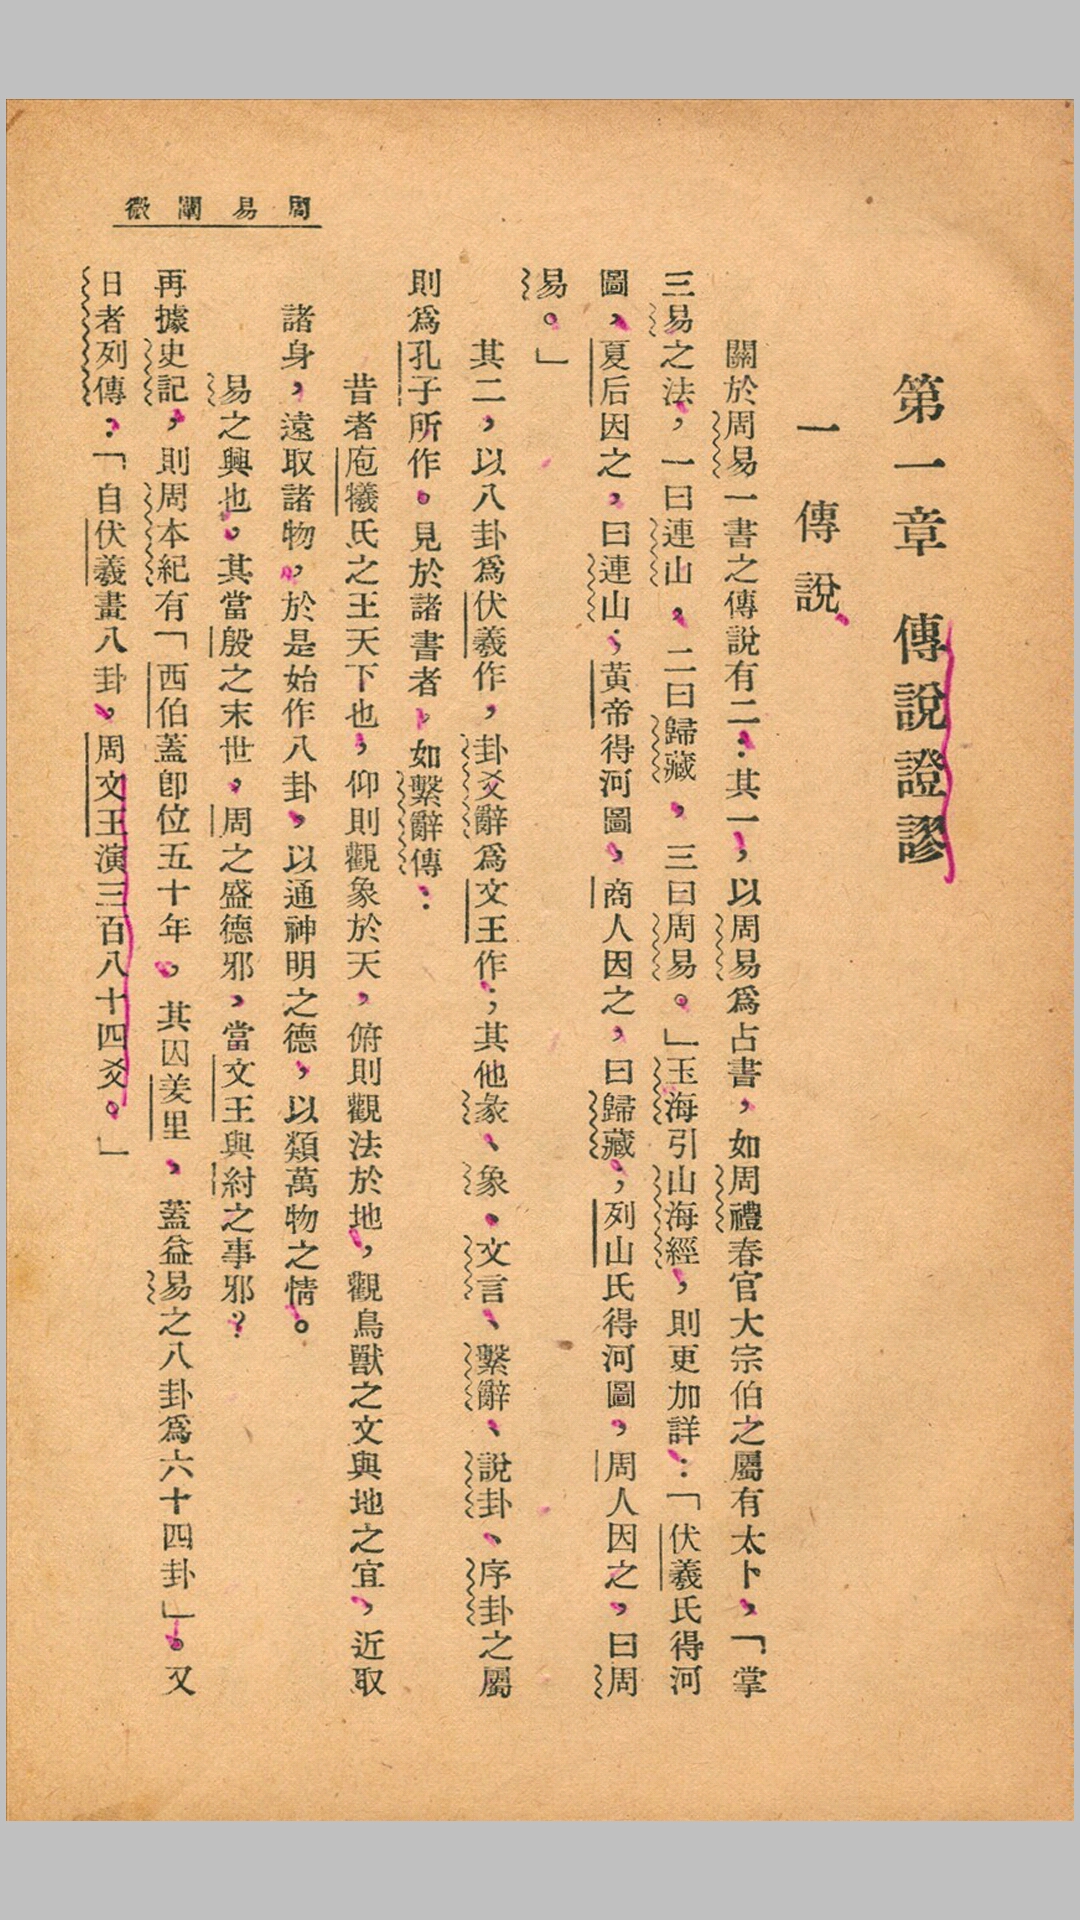 周易闡微
第一章　傳說證謬
一　傳說
關於周易一書之傳說有二：其一，以周易爲占書，如周禮春官大宗伯之屬有太卜，「掌
三易之法，一曰連山，二曰歸藏，三曰周易。」玉海引山海經，則更加詳：「伏羲氏得河
圖，夏后因之，曰連山；黃帝得河圖，商人因之，曰歸藏；列山氏得河圖，周人因之，曰周
易。」
其二，以八卦爲伏羲作，卦爻辭爲文王作；其他彖、象、文言、繫辭、說卦、序卦之屬
則爲孔子所作。見於諸書者，如繫辭傳：
昔者庖犧氏之王天下也，仰則觀象於天，俯則觀法於地，觀鳥獸之文與地之宜，近取
諸身，遠取諸物，於是始作八卦，以通神明之德，以類萬物之情。
易之興也，其當殷之末世，周之盛德邪，當文王與紂之事邪？
再據史記，則周本紀有「西伯蓋卽位五十年，其囚羑里，蓋益易之八卦爲六十四卦」。又
日者列傳：「自伏羲畫八卦，周文王演三百八十四爻。」